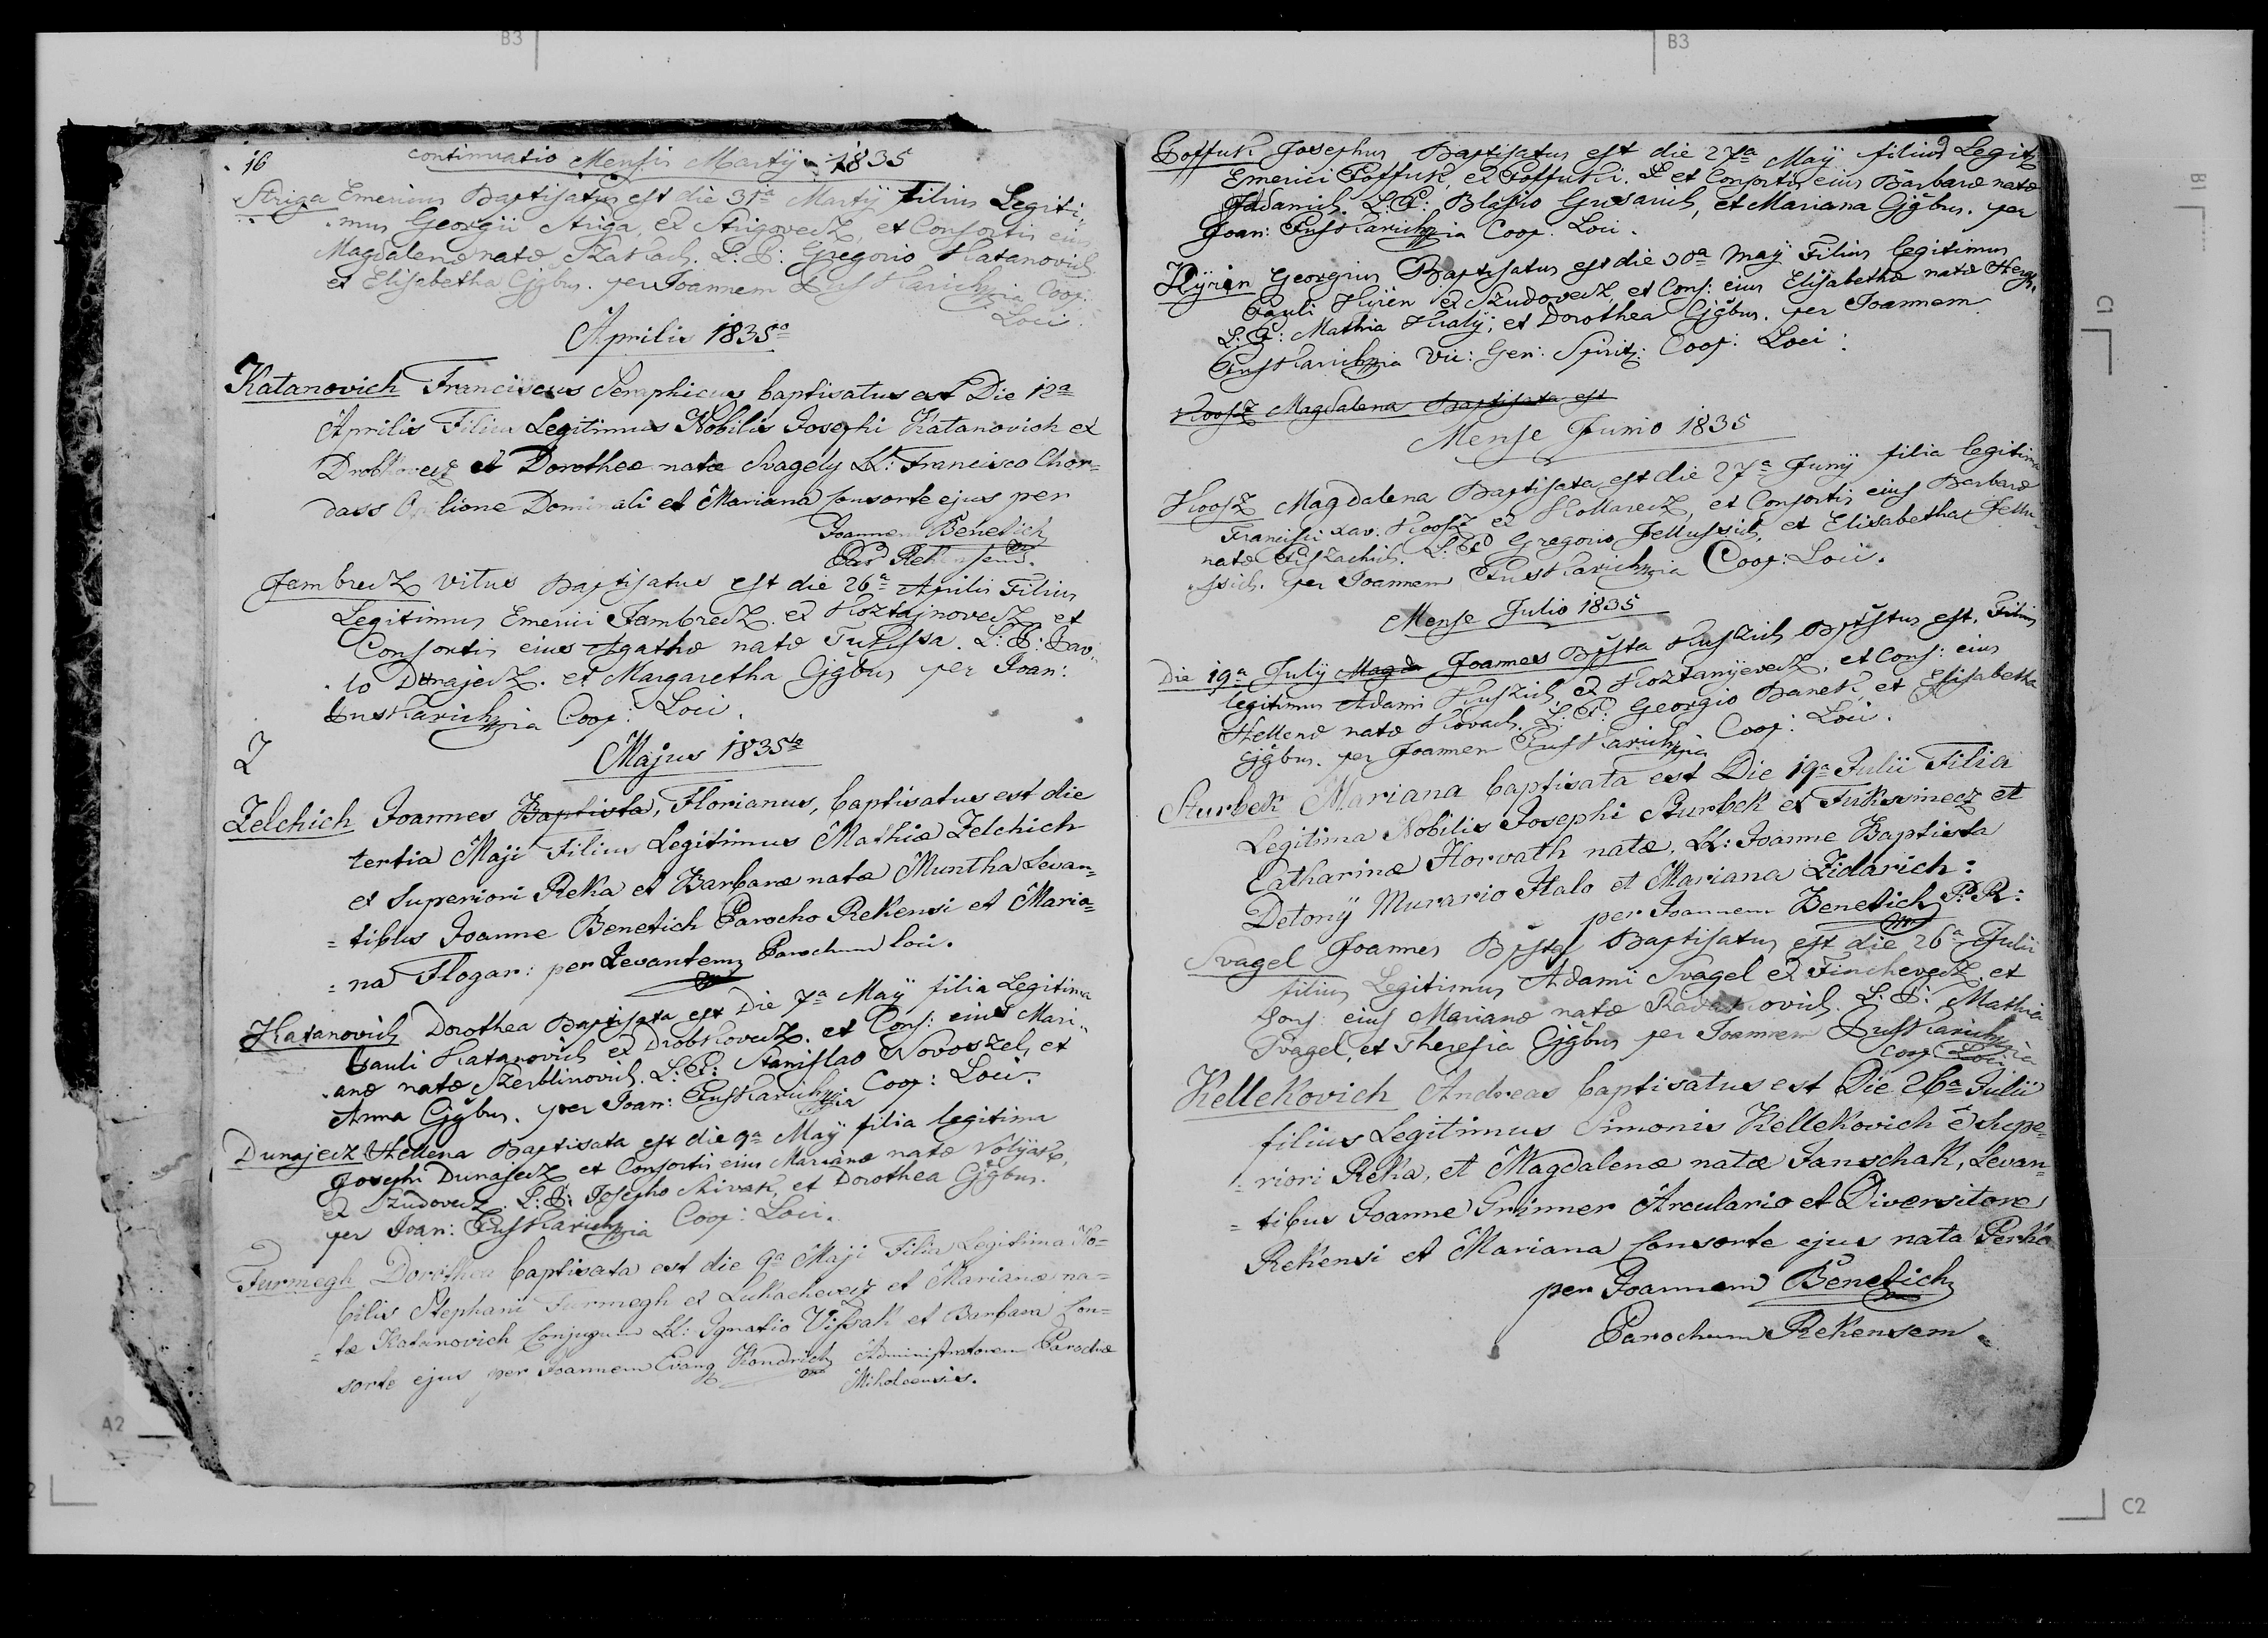 B3
B3
16
continuatio Mensis Martÿ 1835
Striga Emericus Baptisatus est die 31a Martÿ filius Legiti-
mus Georgii Striga, ex Strigovecz, et Consortis eius
Magdalenæ natæ L: P: Gregorio Katanovich
et Elisabetha Cjgbus. per Joannem Puskarich Coop:
Loci.
Aprilis 1835o
Katanovich Franciscus Seraphicus baptisatus est Die 12a
Aprilis Filius Legitimus Nobilis Josephi Katanovich ex
Drobkovecz et Dorotheæ natæ Svagely LL: Francisco Chor=
dass Dominali et Mariana consorte ejus per
Joannem Benetich
Par Rekensem.
Jambrecz Vitus Baptisatus est die 26a Aprilis Filius
Legitimus Emerici Jambrecz ex Koztajnovecz et
Consortis eius Agathæ natæ L: P: Pav-
lo Dunajecz. et Margaretha Cjgbus per Joan:
Puskarich Coop: Loci.
Z
Majus 1835to
Zelchich Joannes Baptista, Florianus, baptisatus est die
tertia Maji Filius Legitimus Mathiæ Zelchich
ex Superiori Reka et Barbaræ natæ Muntha Levan=
=tibus Joanne Benetich Parocho Rekensi et Maria=
=na Flogar: per Levantem Parochum loci.
Katanovich Dorothea Baptisata est Die 7a Maÿ filia Legitima
Pauli Katanovich ex Drobkovecz. et Cons: eius Mari-
anæ natæ Szerblinovich. L: P: Stanislao Novoszel, et
Anna Cjgbus. per Joan: Puskarich Coop: Loci.
Dunajecz Hellena Baptisata est die 9a Maÿ filia legitima
Josephi Dunajecz et Consortis eius Marianæ natæ
ex Szudovecz. L: P: Josepho et Dorothea Cjgbus.
per Joan: Puskarich Coop: Loci.
Furmegh Dorothea baptisata est die 9a Maji Filia Legitima No=
bilis Stephani Furmegh ex Lukachevecz et Marianæ na=
=tæ Katanovich Conjugum LL: Ignatio Vissak et Barbara Con=
sorte ejus per Joannem Evang Kondrich Administratorem Parochiæ
Miholcensis.
Poffuk Josephus Baptisatus est die 27a Maÿ filius Legit
Emerici Poffuk, ex Poffuki. et Consortis eius Barbaræ natæ
Adamich. L: P: Blasio Grisarich, et Mariana Cjgbus. per
Joan: Puskarich Coop. Loci.
Kyrin Georgius Baptisatus est die 30a Maÿ Filius legitimus
Pauli ex Szudovecz, et Cons: eius Elisabethæ natæ
L: P: Mathia Kralÿ, et Dorothea Cjgbus. per Joannem
Puskarich Vic: Gen: Spirit: Coop: Loci:
Koosz Magdalena Baptisata est
Mense Junio 1835
Koosz Magdalena Baptisata est die 27a Junÿ filia legitima
Francisci Xav. Koosz ex Kollarecz, et Consortis eius Barbaræ
natæ L: P: Gregorio Jellussich, et Elisabetha Jellu-
ssich. per Joannem Puskarich Coop: Loci.
Mense Julio 1835
Die 19a Julÿ Magda Joannes Bpsta Kuszich Bptstus est. Filius
legitimus Adami Kuszich ex et Cons: eius
Hellenæ natæ Kovach. L: P: Georgio Banek, et Elisabetha
Cjgbus. per Joannem Puskarich Coop: Loci.
Sturbek Mariana baptisata est Die 19a Julii Filia
Legitima Nobilis Josephi Sturbek et Fuksinecz et
Catharinæ Horvath natæ. LL: Joanne Baptista
Detonÿ Murario Italo et Mariana Zidarich:
per Joannem Benetich P. R:
Svagel Joannes Bpsta Baptisatus est die 26a Julii
filius Legitimus Adami Svagel ex Finchevecz et
Cons: eius Marianæ natæ L: P: Mathia
Svagel, et Theresia Cjgbus per Joannem Puskarich
Coop Loci
Kellekovich Andreas baptisatus est Die 26a Julii
filius Legitimus Simonis Kellekovich e Supe=
=riori Reka, et Magdalenæ natæ Janschak, Levan=
=tibus Joanne Grinner Arculario et Diversitore
Rekensi et Mariana consorte ejus nata Perko
per Joannem Benetich
Parochum Rekensem.
A2
B1
C1
C2